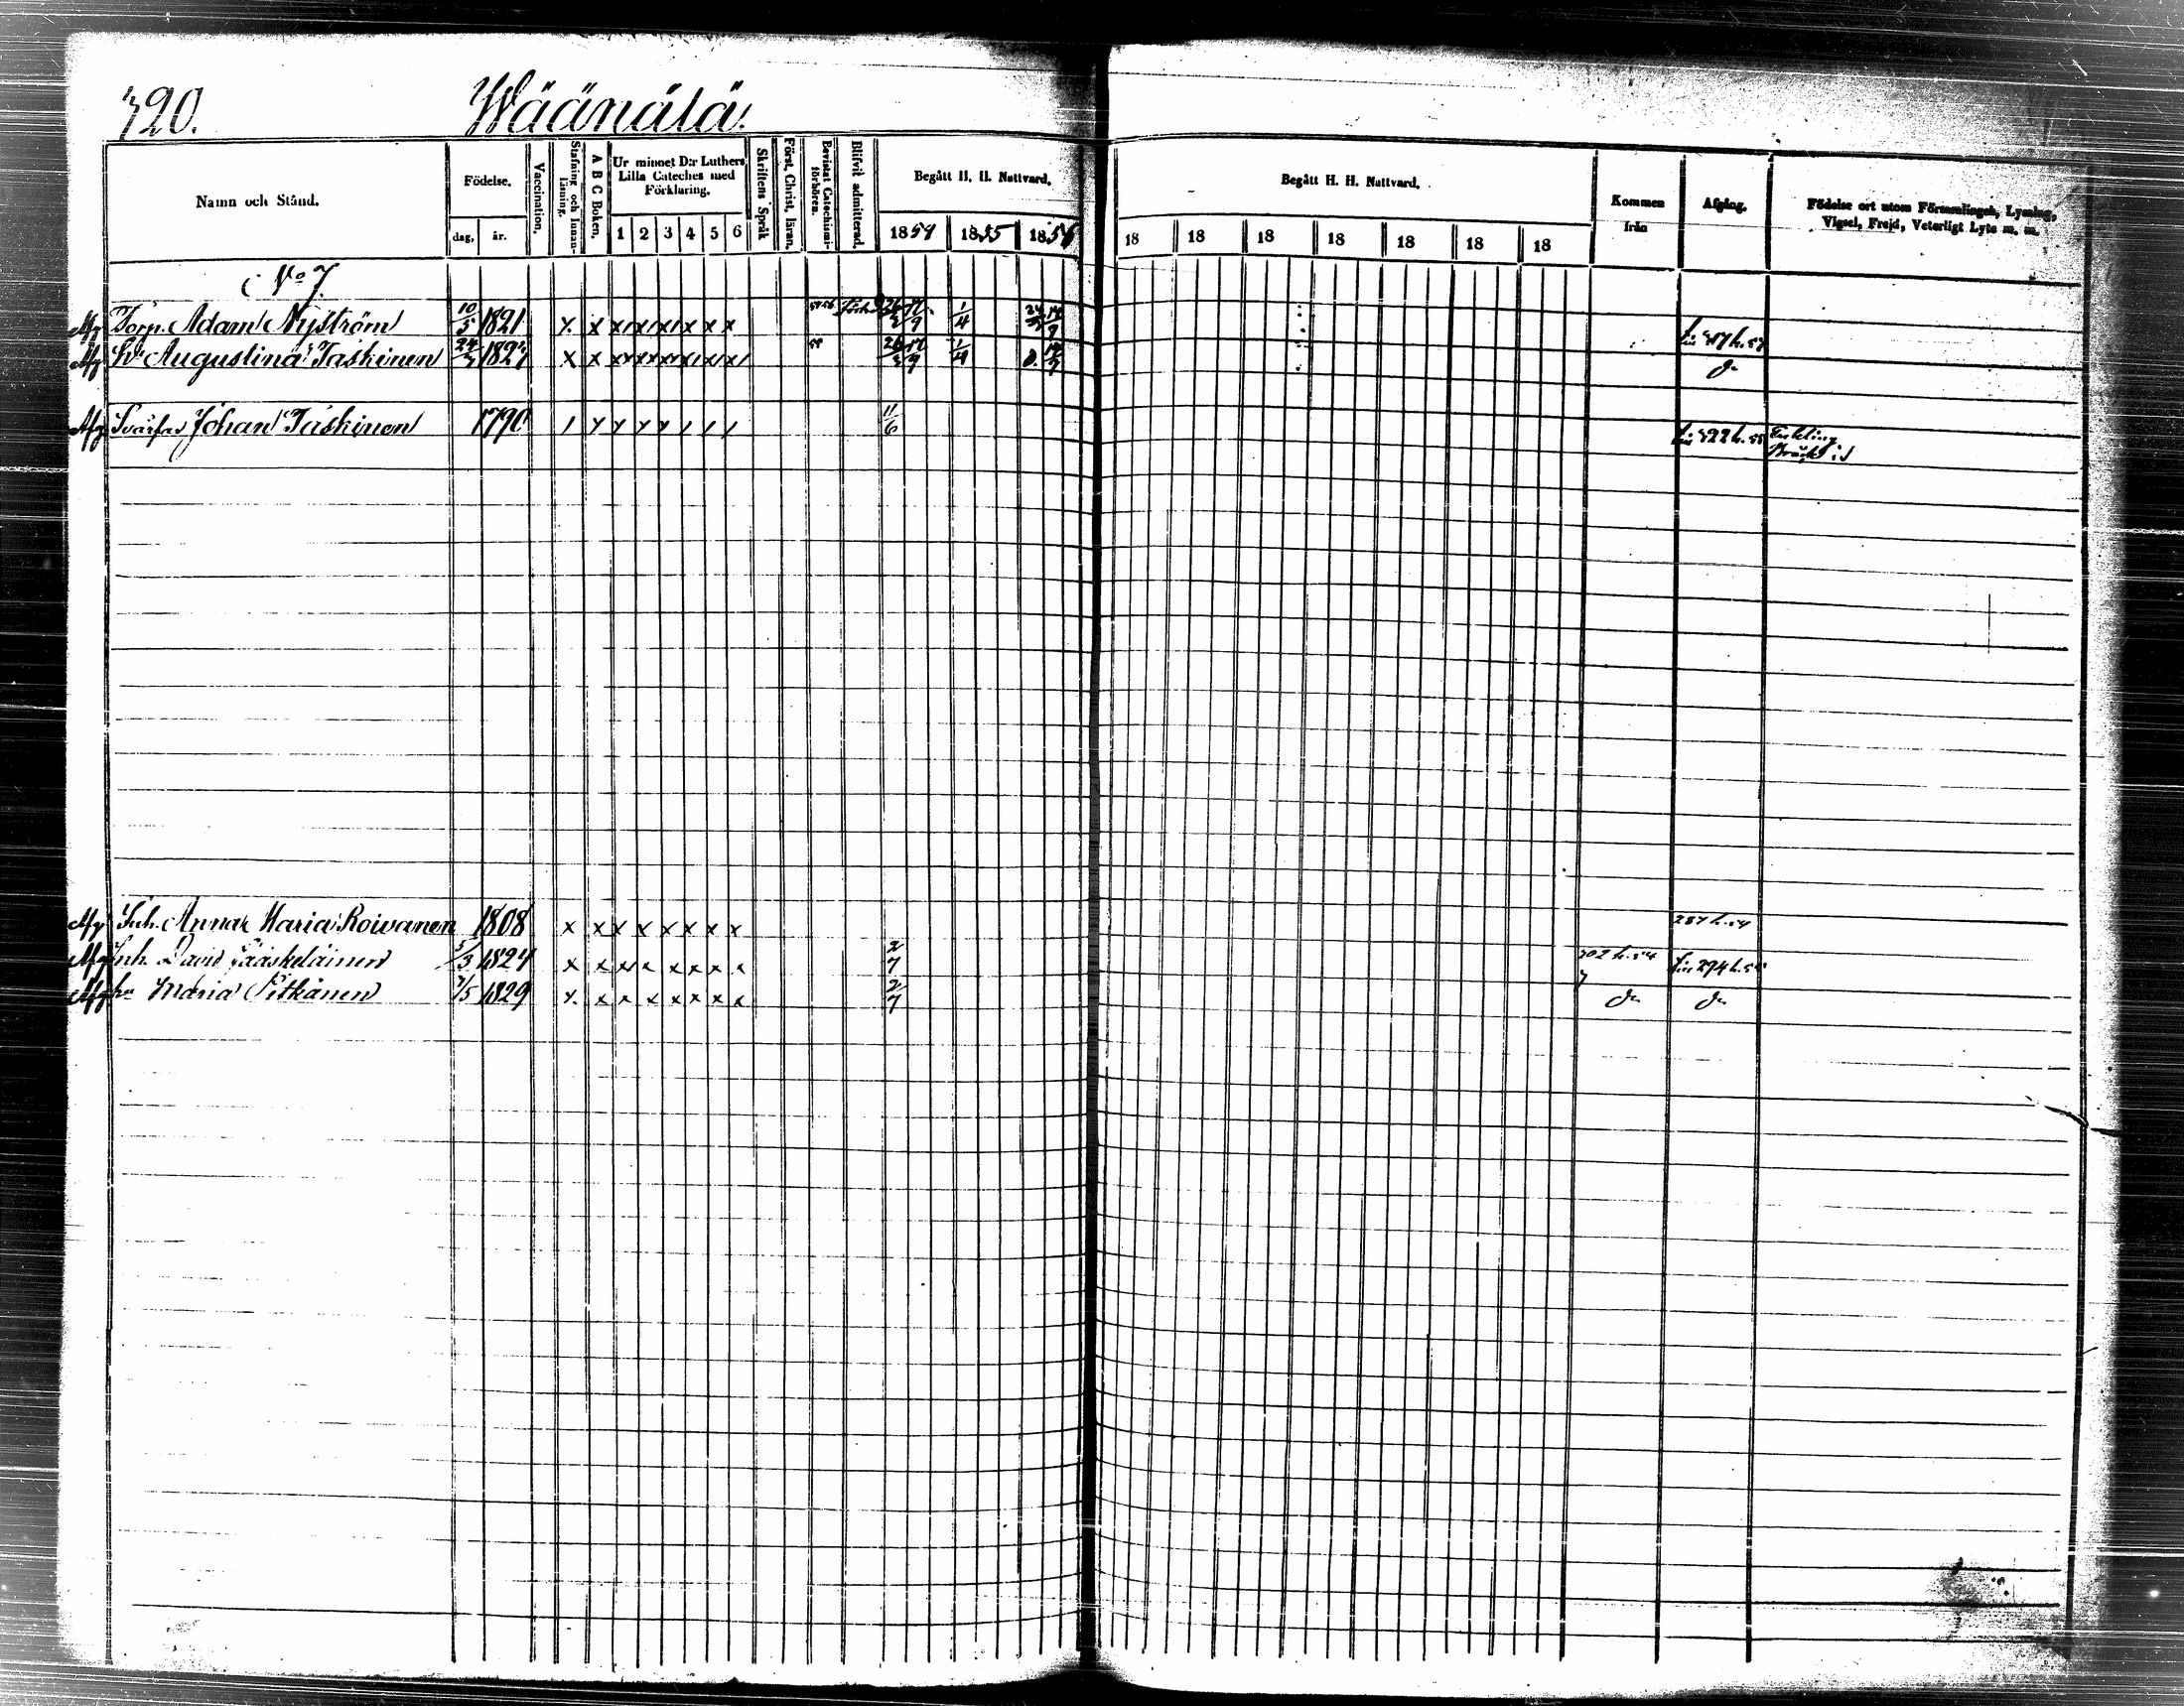 320. Wäänälä.
Namn och Stånd. Födelse. dag, år. Vaccination. Stafning och Innanläsning. A B C Boken. Ur minnet D:r Luthers Lilla Cateches med Förklaring. 1 2 3 4 5 6 Skriftens Språk Förft. Christ. läran. Bevistat Catechismiförhören. Blifvit admitterad. Begått H. H. Nattvard. 1854 1855 1856
Begått H. H. Nattvard. 18 18 18 18 18 18 18 Kommen från Afgång. Födelse ort utom Församlingen, Lysning, Vigsel, Frejd, Veterligt Lyte m. m.
No 7.
Afg Torp. Adam Nyström 10/5 1821 x x x x x x x x 1/4
Afg Hu Augustina Taskinen 1827 x x x x x x x x 1/4 do
Afg Svärfar Johan Taskinen 1790 11/6 322 h. 55 Enkling
Afg Inh. Anna Maria Roivanen 1808 x x x x x x x x 287 h. 54
Afg Inh. David Jääskeläinen 5/3 1824 x x x x x x x x 2/7 302 h. 54 294 h. 55
Afg hu Maria Pitkänen 7/5 1829 x x x x x x x x 2/7 do do